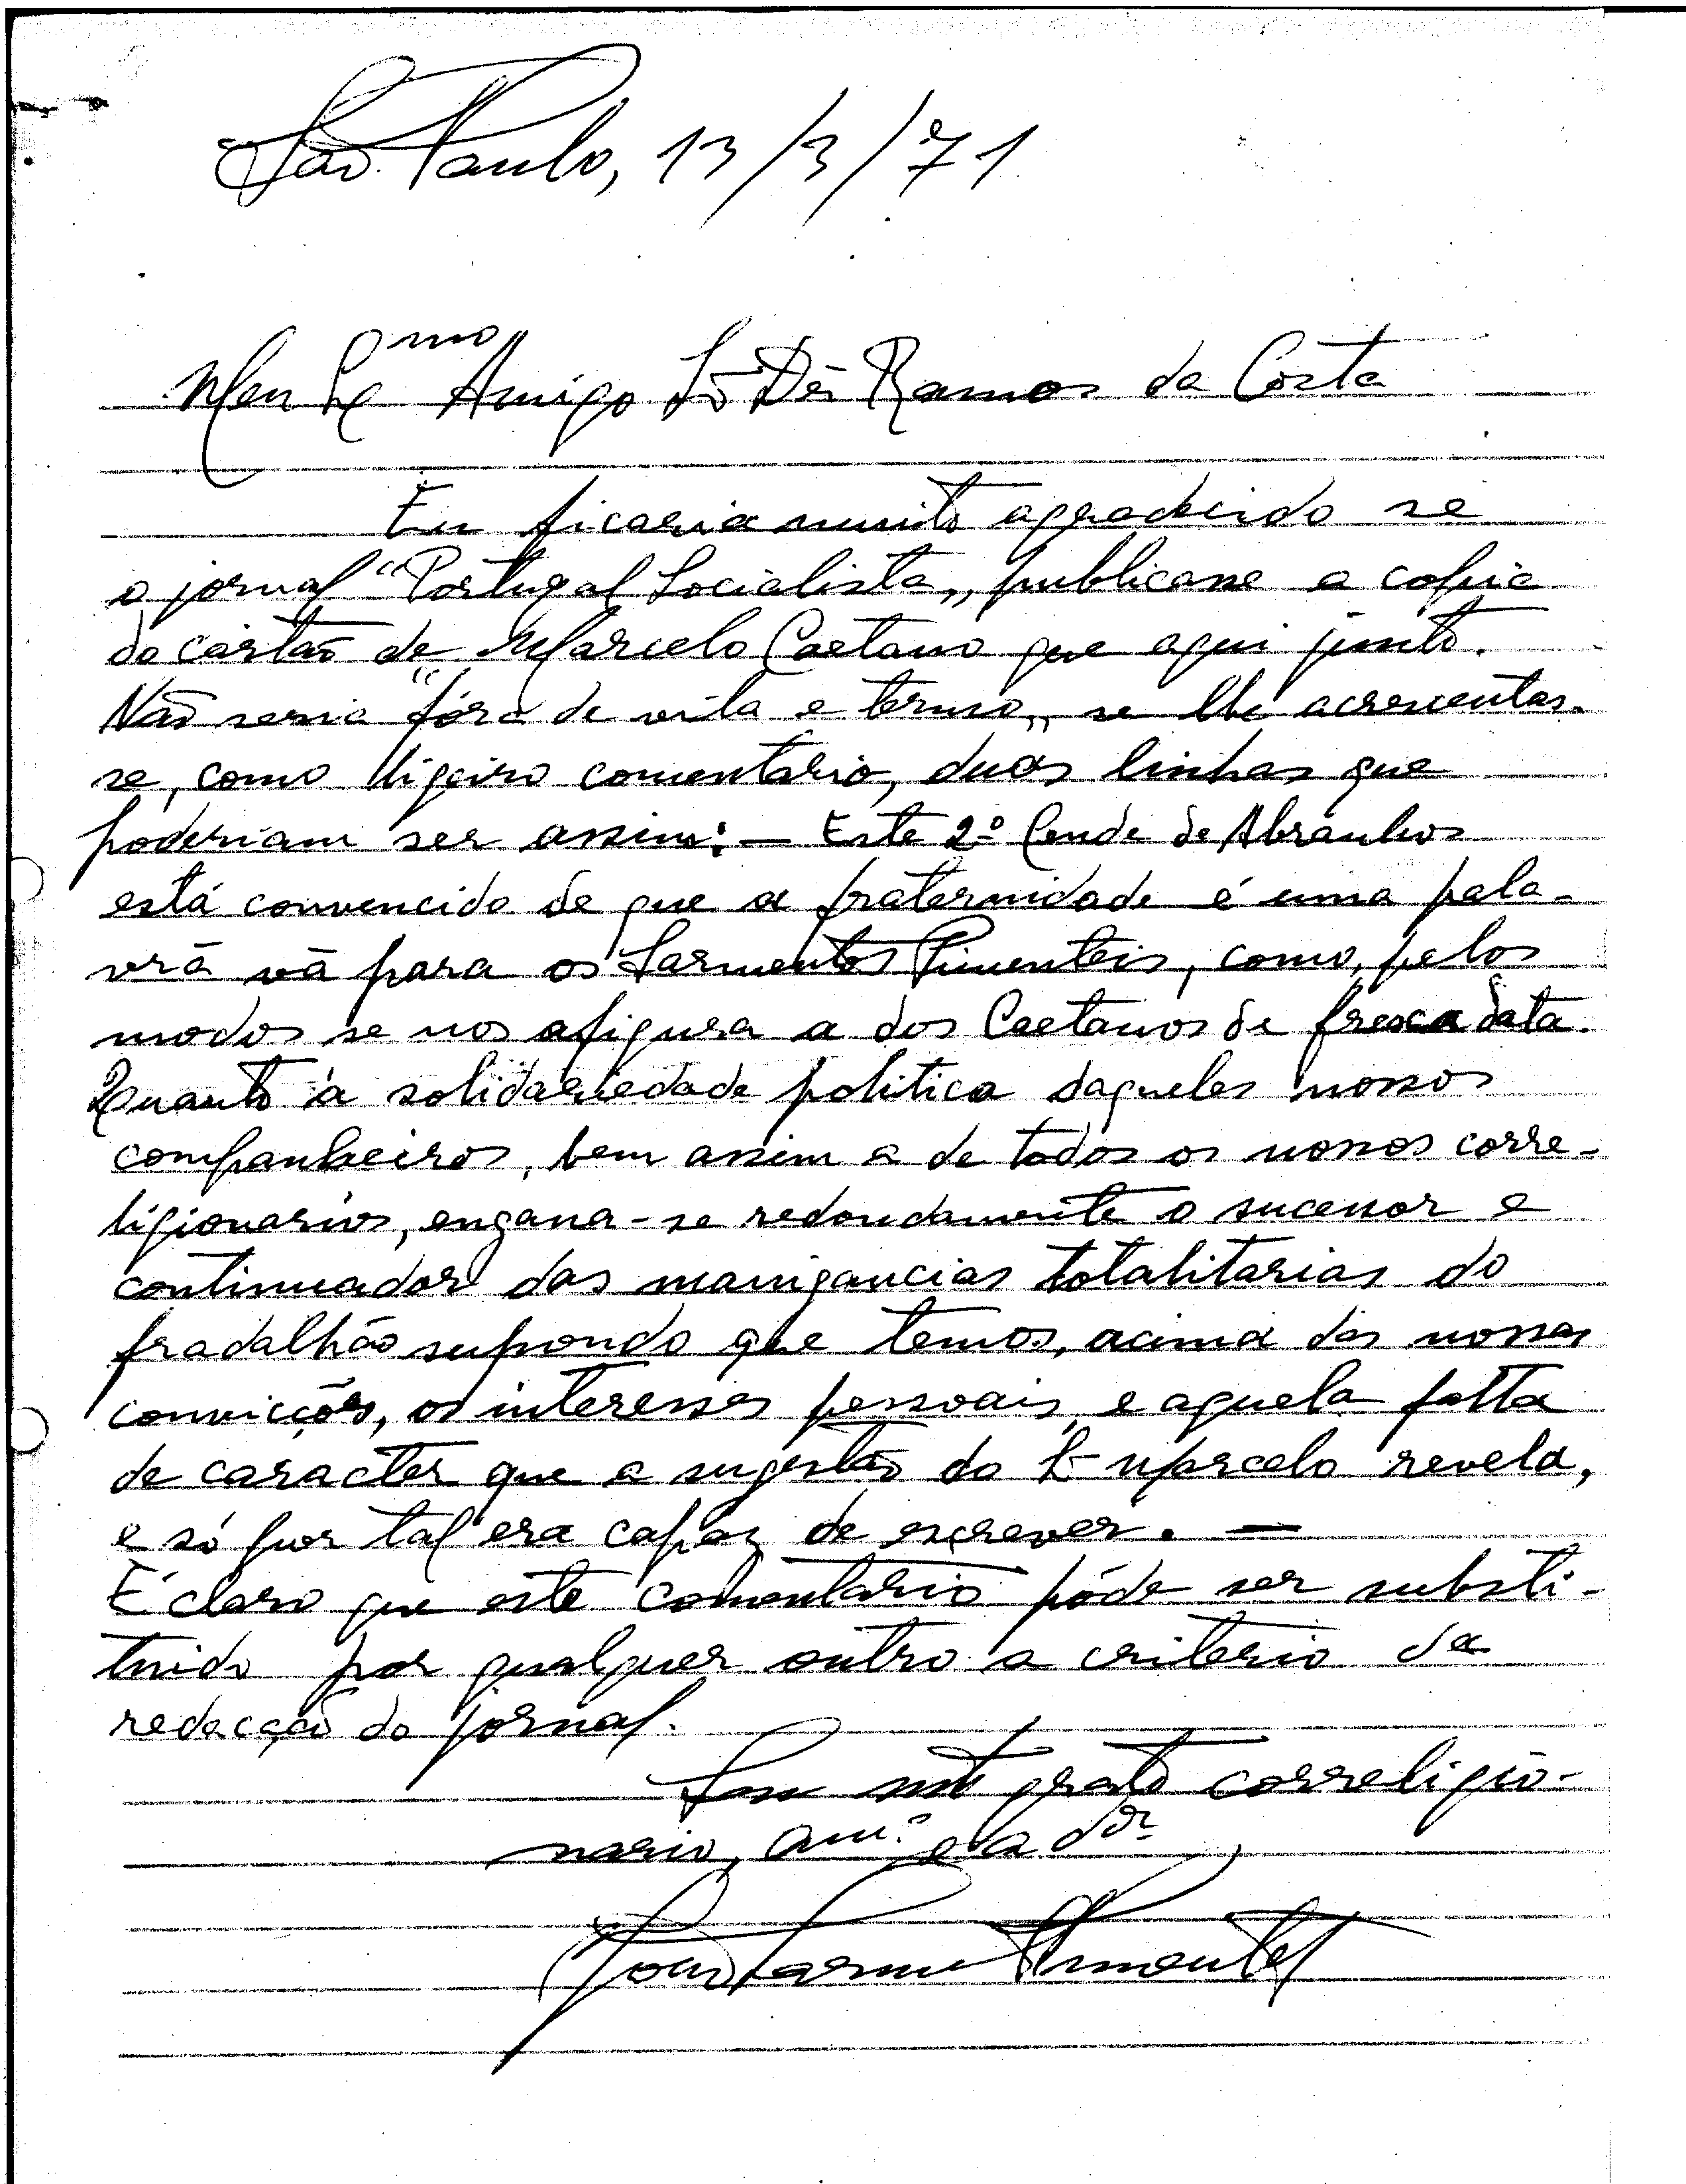 São Paulo, 13/3/71
Meu Exmo Amigo Sr Dr Ramos da Costa
Eu ficaria muito agradecido se
o jornal "Portugal Socialista" publicasse a copia
do cartão de Marcelo Caetano que aqui junto.
Não seria "fóra de vila e termo" se lhe acrescentas-
se, como ligeiro comentario, duas linhas que
poderiam ser assim: — Este 2º Conde de Abranhos
está convencido de que a fraternidade é uma pala-
vra vã para os Sarmentos Pimenteis, como, pelos
modos se nos afigura a dos Caetanos de fresca data.
Quanto à solidariedade politica daqueles nossos
companheiros, bem assim a de todos os nossos corre-
ligionarios, engana-se redondamente o sucessor e
continuador das manigancias totalitarias do
fradalhão supondo que temos, acima das nossas
convicções, os interesses pessoais, e aquela falta
de caracter que a sugestão do Marcelo revela,
e só por tal era capaz de escrever. —
É claro que este comentario póde ser substi-
tuido por qualquer outro a criterio da
redacção do jornal.
Sou mto grato correligio-
nario, amº e ador
João Sarmento Pimentel